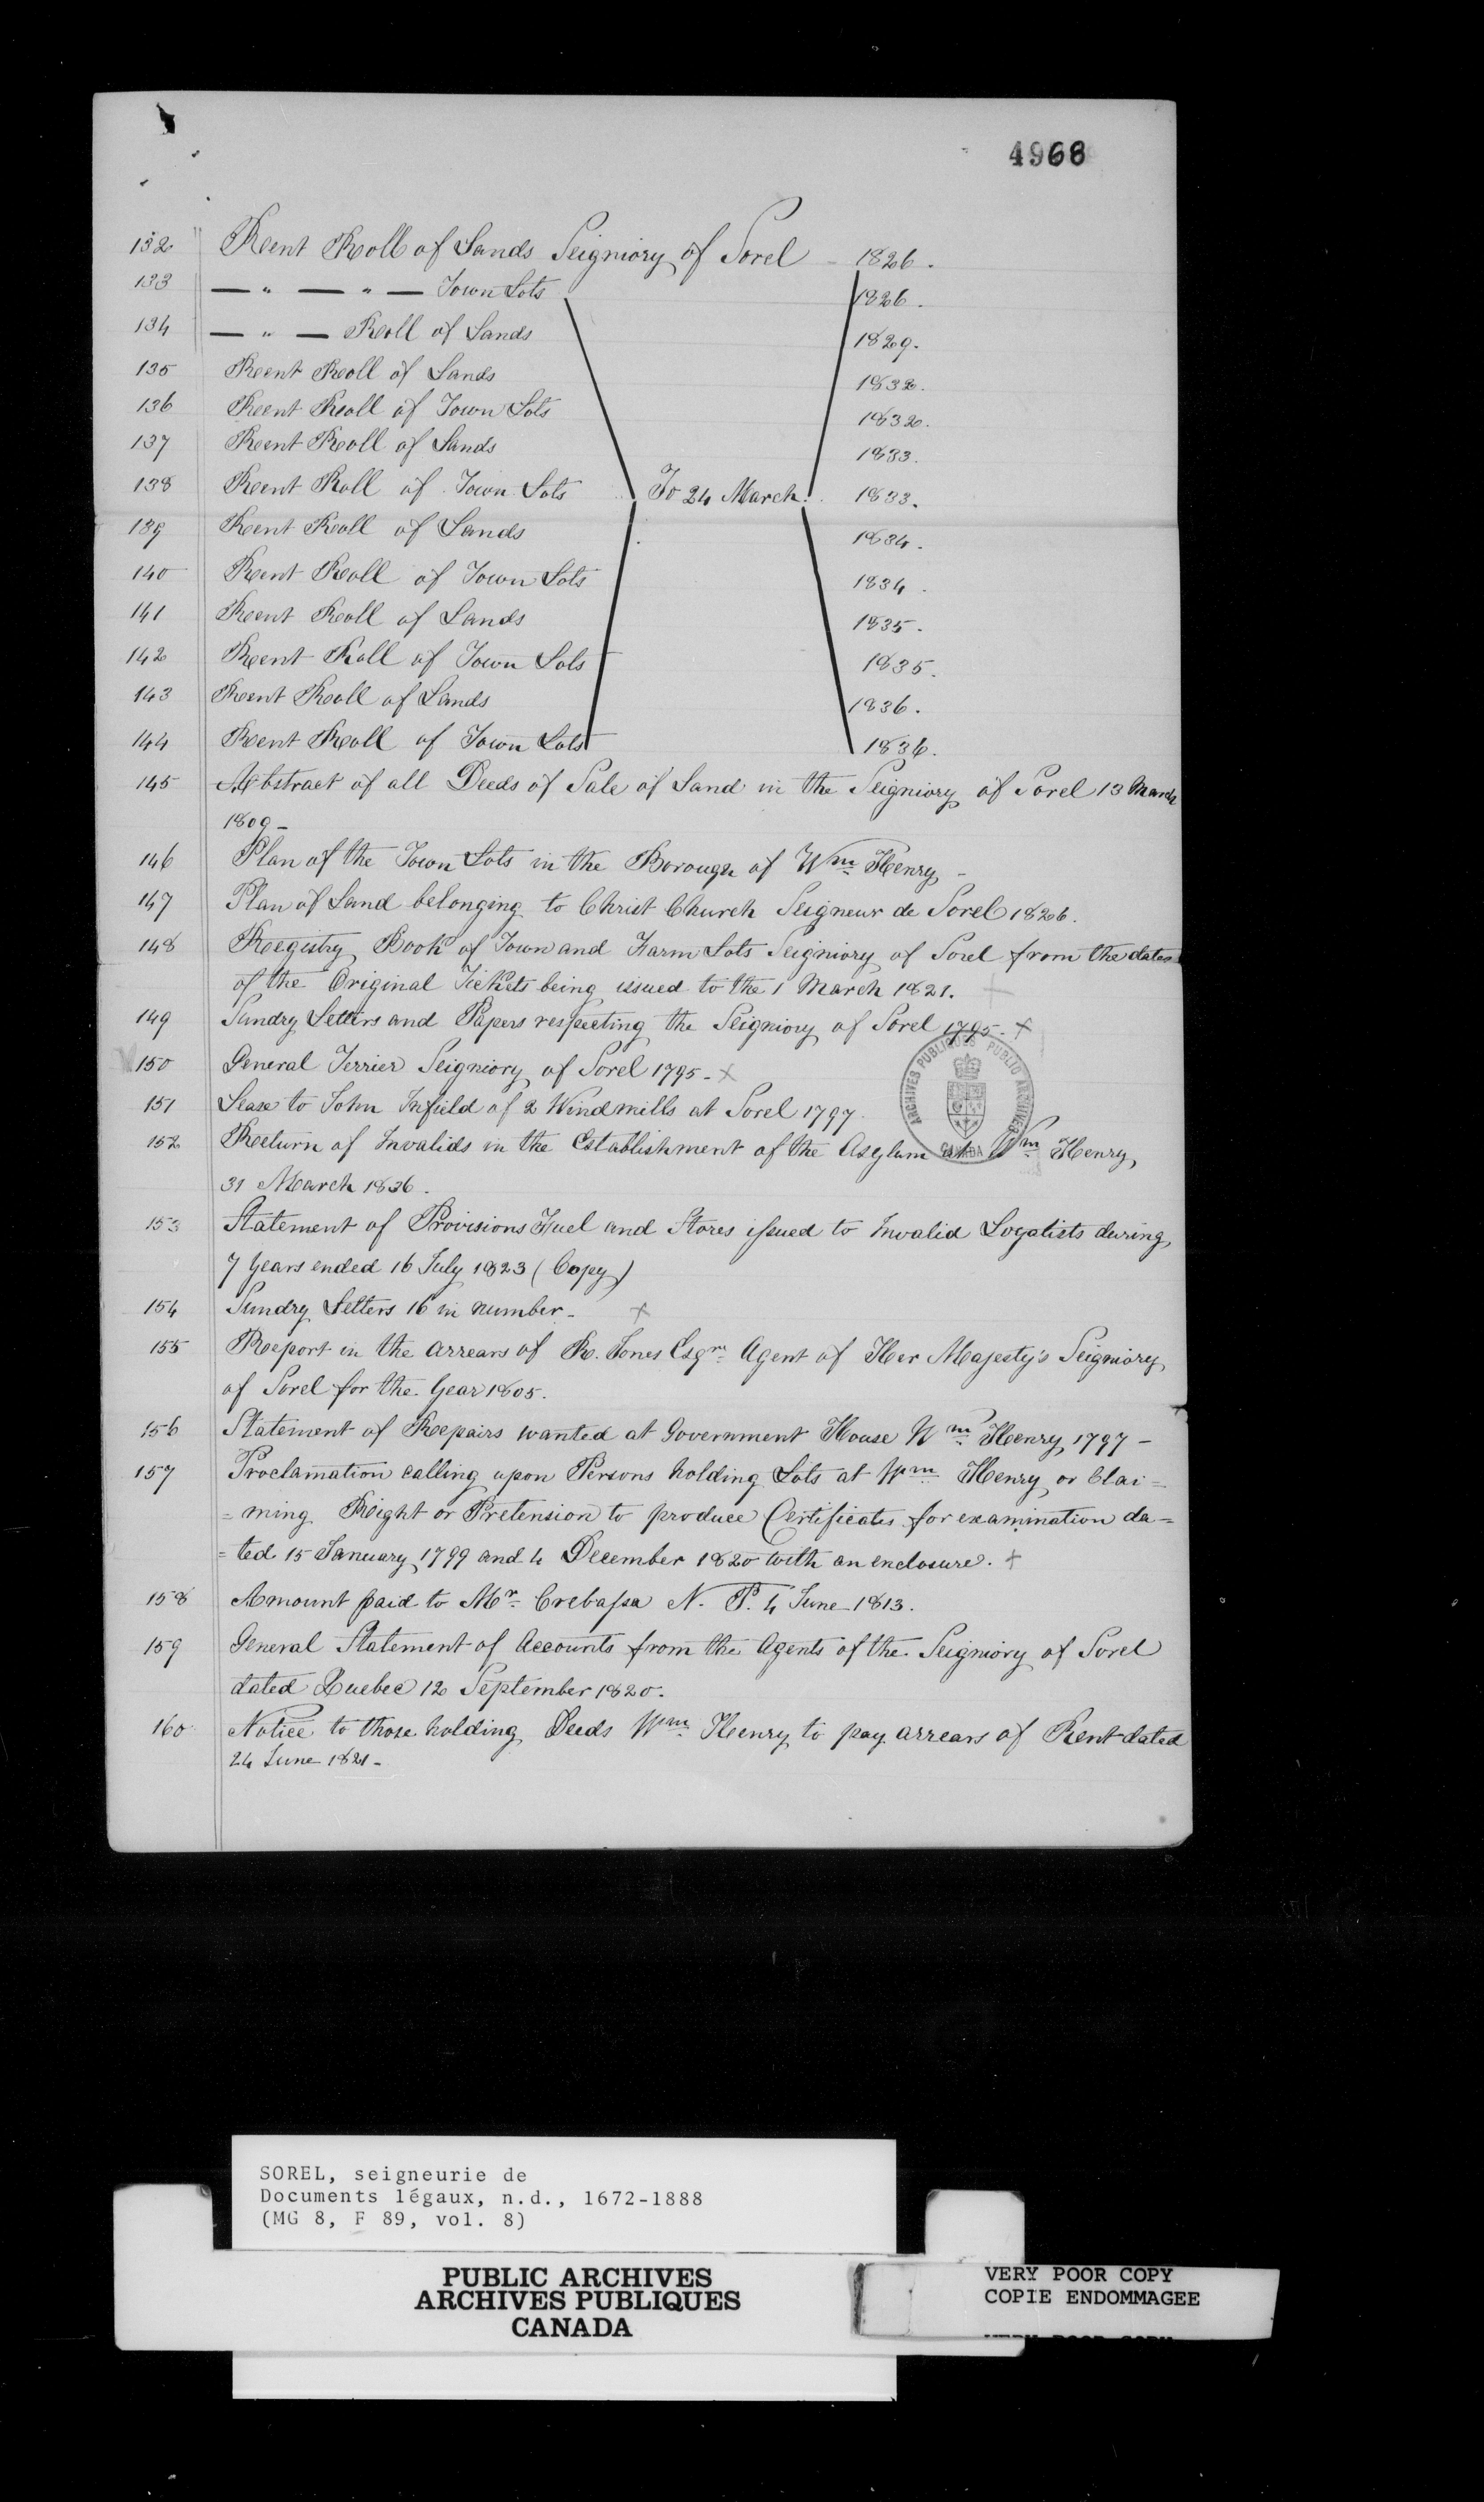 4968
132 Rent Roll of Lands Seigniory of Sorel - 1826.
133 — " — " — Town Lots 1826.
134 — " — Roll of Lands 1829.
135 Rent Roll of Lands 1832.
136 Rent Roll of Town Lots 1832.
137 Rent Roll of Lands 1833.
138 Rent Roll of Town Lots To 24 March. 1833.
139 Rent Roll of Lands 1834.
140 Rent Roll of Town Lots 1834.
141 Rent Roll of Lands 1835.
142 Rent Roll of Town Lots 1835.
143 Rent Roll of Lands 1836.
144 Rent Roll of Town Lots 1836.
145 Abstract of all Deeds of Sale of Land in the Seigniory of Sorel 13 March
1809 -
146 Plan of the Town Lots in the Borough of Wm. Henry -
147 Plan of Land belonging to Christ Church Seigneur de Sorel 1826.
148 Registry Book of Town and Farm Lots Seigniory of Sorel from the dates
of the Original Tickets being issued to the 1 March 1821. +
149 Sundry Letters and Papers respecting the Seigniory of Sorel 1795 - x
150 General Terrier Seigniory of Sorel 1795 - x
151 Lease to John Infield of 2 Windmills at Sorel 1797.
152 Return of Invalids in the Establishment of the Asylum at Wm. Henry,
31 March 1836.
153 Statement of Provisions Fuel and Stores issued to Invalid Loyalists during
7 Years ended 16 July 1823 (Copy)
154 Sundry Letters 16 in number - x
155 Report in the arrears of R. Jones Esqre. Agent of Her Majesty's Seigniory
of Sorel for the Year 1805.
156 Statement of Repairs wanted at Government House Wm. Henry 1797 -
157 Proclamation calling upon Persons holding Lots at Wm. Henry or Clai=
=ming Right or Pretension to produce Certificates for examination da=
=ted 15 January 1799 and 4 December 1820 with an enclosure. +
158 Amount paid to Mr. Crebassa N. P. 4 June 1813.
159 General Statement of Accounts from the Agents of the Seigniory of Sorel
dated Quebec 12 September 1820.
160 Notice to those holding Deeds Wm. Henry to pay arrears of Rent dated
24 June 1821 -
ARCHIVES PUBLIQUES PUBLIC ARCHIVES
CANADA
SOREL, seigneurie de
Documents légaux, n.d., 1672-1888
(MG 8, F 89, vol. 8)
PUBLIC ARCHIVES
ARCHIVES PUBLIQUES
CANADA
VERY POOR COPY
COPIE ENDOMMAGEE
VERY POOR COPY